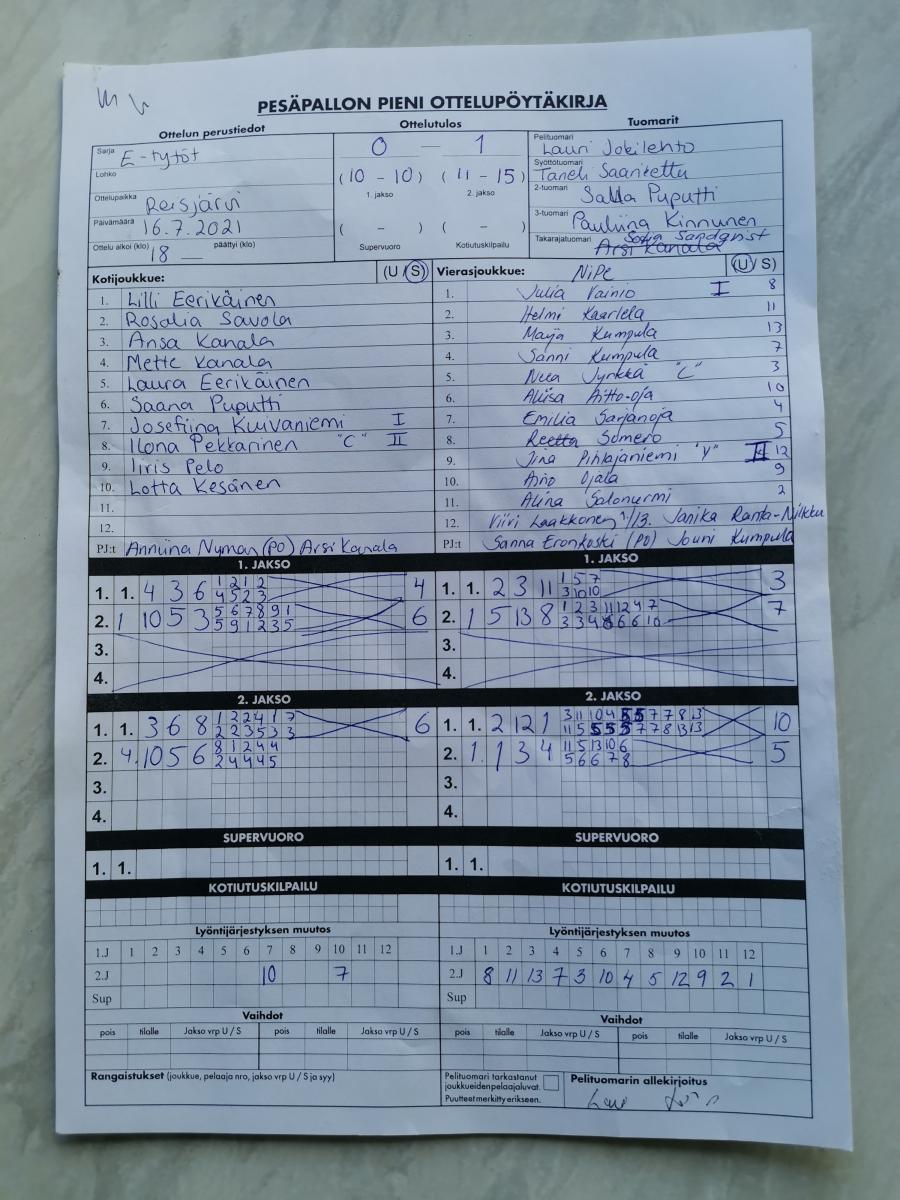 PESÄPALLON PIENI OTTELUPÖYTÄKIRJA
Ottelun perustiedot Ottelutulos Tuomarit
Sarja E-tytöt
Lohko
Ottelupaikka Reisjärvi
Päivämäärä 16.7.2021
Ottelu alkoi (klo) 18 päättyi (klo)
0 — 1
(10 - 10) (11 - 15)
1. jakso 2. jakso
( - ) ( - )
Supervuoro Kotiutuskilpailu
Pelituomari Lauri Jokilehto
Syöttötuomari Taneli Saaritettu
2-tuomari Salla Puputti
3-tuomari Pauliina Kinnunen
Takarajatuomari Sofia Sandqvist
Arsi Kanala
Kotijoukkue: (U / S)
1. Lilli Eerikäinen
2. Rosalia Savola
3. Ansa Kanala
4. Mette Kanala
5. Laura Eerikäinen
6. Saana Puputti
7. Josefiina Kuivaniemi I
8. Ilona Pekkarinen "C" II
9. Iiris Pelo
10. Lotta Kesänen
11.
12.
PJ:t Anniina Nyman (PO) Arsi Kanala
Vierasjoukkue: NiPe (U / S)
1. Julia Vainio I 8
2. Helmi Kaarlela 11
3. Maija Kumpula 13
4. Sanni Kumpula 7
5. Neea Jyrkkä "C" 3
6. Aliisa Aitto-oja 10
7. Emilia Sarjanoja 4
8. Reetta Somero 5
9. Iina Pihlajaniemi "V" II 12
10. Aino Ojala 9
11. Alina Salonurmi 2
12. Viiri Laakkonen 1/13. Janika Ranta-Nilkku
PJ:t Sanna Eronkoski (PO) Jouni Kumpula
1. JAKSO
1. 1. 4 3 6 1 2 1 2 4
4 5 2 3
2. 1 10 5 3 5 6 7 8 9 1 6
5 9 1 2 3 5
3.
4.
1. JAKSO
1. 1. 2 3 11 1 5 7 3
3 10 10
2. 1 5 13 8 1 2 3 11 12 4 7 7
3 3 4 6 6 6 10
3.
4.
2. JAKSO
1. 1. 3 6 8 1 2 2 4 1 7 6
2 2 3 5 3 3
2. 4. 10 5 6 8 1 2 4 4
2 4 4 4 5
3.
4.
2. JAKSO
1. 1. 2 12 1 3 11 10 4 5 5 7 7 8 13 10
11 5 5 5 5 7 7 8 13 13
2. 1. 1 3 4 11 5 13 10 6 5
5 6 6 7 8
3.
4.
SUPERVUORO
1. 1.
SUPERVUORO
1. 1.
KOTIUTUSKILPAILU
KOTIUTUSKILPAILU
Lyöntijärjestyksen muutos
1.J 1 2 3 4 5 6 7 8 9 10 11 12
2.J 10 7
Sup
Lyöntijärjestyksen muutos
1.J 1 2 3 4 5 6 7 8 9 10 11 12
2.J 8 11 13 7 3 10 4 5 12 9 2 1
Sup
Vaihdot
pois tilalle Jakso vrp U / S pois tilalle Jakso vrp U / S
Vaihdot
pois tilalle Jakso vrp U / S pois tilalle Jakso vrp U / S
Rangaistukset (joukkue, pelaaja nro, jakso vrp U / S ja syy)
Pelituomari tarkastanut
joukkueidenpelaajaluvat.
Puutteet merkitty erikseen.
Pelituomarin allekirjoitus